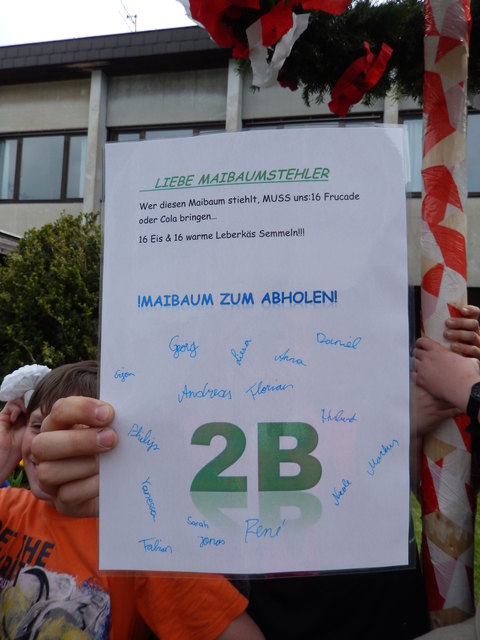 LIEBE MAIBAUMSTEHLER
Wer diesen Maibaum stiehlt, MUSS uns:16 Frucade
oder Cola bringen...
16 Eis & 16 warme Leberkäs Semmeln!!!
!MAIBAUM ZUM ABHOLEN!
Georg
Anna
Daniel
Andreas Florian
Philip
2B
Markus
Vanessa
Nicole
Sarah
René
Fabian
Jonas
THE